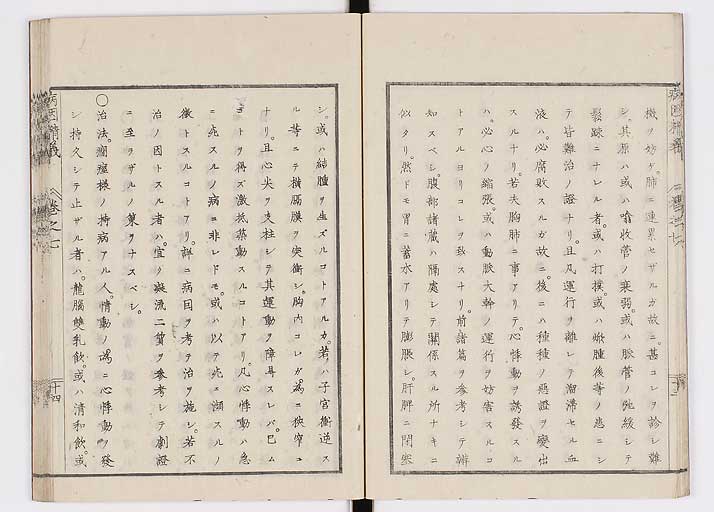 機ヲ妨ゲ。肺ニ連累セザルガ故ニ。甚コレヲ診シ難
シ。其原ハ或ハ噏收管ノ衰弱。或ハ脈管ノ弛緩シテ
鬆踈ニナレル者。或ハ打撲。或ハ焮腫後等ノ患ニシ
テ皆難治ノ證ナリ。且凡運行ヲ離レテ溜滞セル血
液ハ。必腐敗スルガ故ニ。後ニハ種種ノ惡證ヲ變出
スルナリ。若夫胸肺ニ事アリテ。心悸動ヲ誘發スル
ハ。必心ノ縮張。或ハ動脈大幹ノ運行ヲ妨害スルコ
トアルヨリコレヲ致スナリ。前諸篇ヲ参考シテ辨
知スベシ。腹部諸蔵ハ隔處シテ關係スル所ナキニ
似タリ。然ドモ胃ニ蓄水アリテ膨脹シ。肝脾ニ閉塞
病因精義 巻之七 十三
シ。或ハ結腫ヲ生ズルコトアルカ。若クハ子宮衝逆ス
ル等ニテ横膈膜ヲ突衝シ。胸内コレガ為ニ狹窄コ
ナリ。且心尖ヲ支柱シテ其運動ヲ障碍スレバ。已ム
コトヲ得ズ激抵蒸動スルコトアリ。凡心悸動ハ急
ニ死スルノ病ニ非レドモ。或ハ以テ死ニ瀕スルノ
徴トスルコトアリ。詳ニ病因ヲ考ヘ治ヲ施シ。若不
治ノ因トスル者ハ。宜ク凝流二質ヲ参考シテ劇證
ニ至ラザルノ策ヲナスベシ。
〇治法癇瘟様ノ持病アル人。情動ノ為ニ心悸動ヲ發
シ持久シテ止ザル者ハ。龍腦雙乳飲。或ハ清和飲。或
病因精義 巻之七 十四